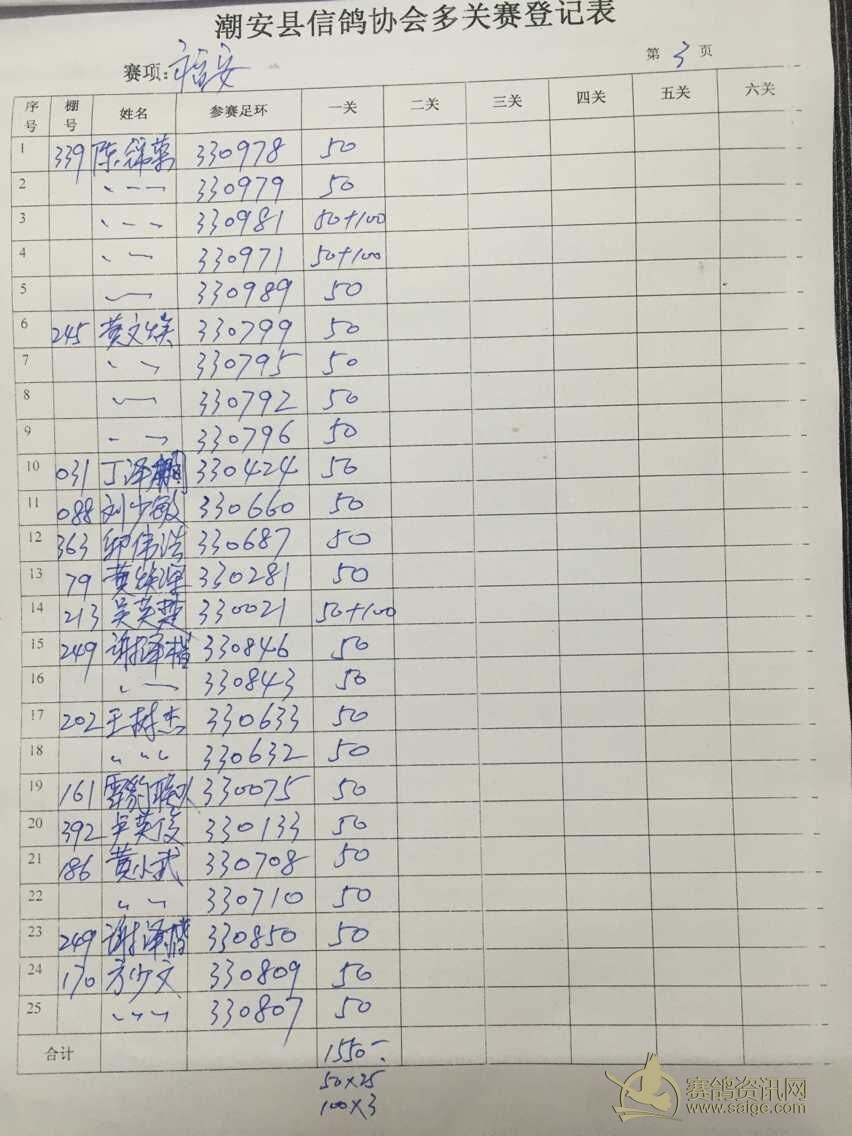 潮安县信鸽协会多关赛登记表
赛项：福安 第 3 页
序号 棚号 姓名 参赛足环 一关 二关 三关 四关 五关 六关
1 339 陈锦荣 330978 50
2 〃 330979 50
3 〃 330981 50+100
4 〃 330971 50+100
5 〃 330989 50
6 245 黄文焕 330799 50
7 〃 330795 50
8 〃 330792 50
9 〃 330796 50
10 031 丁泽鹏 330424 50
11 088 刘少敏 330660 50
12 363 伟浩 330687 50
13 79 黄 330281 50
14 213 吴英楚 330021 50+100
15 249 谢泽楷 330846 50
16 〃 330843 50
17 202 王树杰 330633 50
18 〃 330632 50
19 161 雪豹联队 330075 50
20 392 卓英俊 330133 50
21 186 黄小武 330708 50
22 〃 330710 50
23 249 谢泽楷 330850 50
24 170 方少文 330809 50
25 〃 330807 50
合计 1550-
50×25
100×3
赛鸽资讯网
www.saige.com